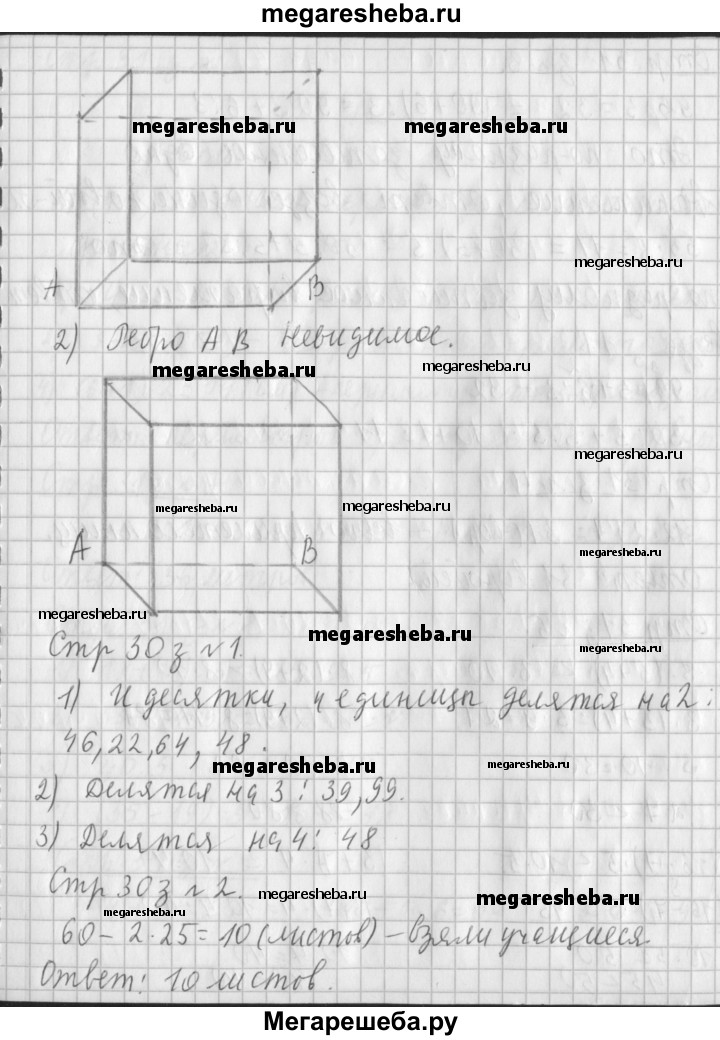 megaresheba.ru
megaresheba.ru megaresheba.ru
megaresheba.ru
А В
2) Ребро АВ невидимое.
megaresheba.ru megaresheba.ru
megaresheba.ru
megaresheba.ru megaresheba.ru
А В
megaresheba.ru
megaresheba.ru
megaresheba.ru
Стр 30 з №1.
megaresheba.ru
1) И десятки, и единицы делятся на 2:
46, 22, 64, 48.
megaresheba.ru megaresheba.ru
2) Делятся на 3: 39, 99.
3) Делятся на 4: 48
Стр 30 з №2.
megaresheba.ru megaresheba.ru
megaresheba.ru
60 - 2·25 = 10 (листов) - взяли учащиеся.
Ответ: 10 листов.
Мегарешеба.ру